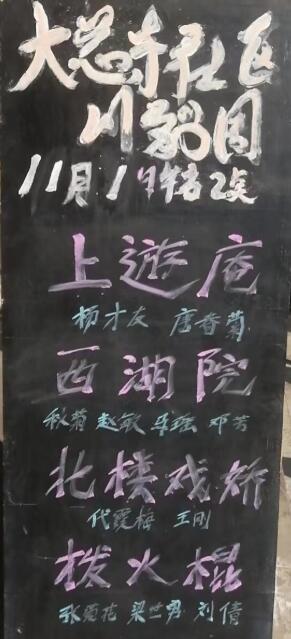 大慈寺社区
川剧团
11月1日特邀2点
上遊庵
杨才友 唐春菊
西湖院
秋菊 赵敏 马瑶 邓芳
北楼戏娇
代霞梅 王刚
拨火棍
张菊花 梁世勇 刘倩